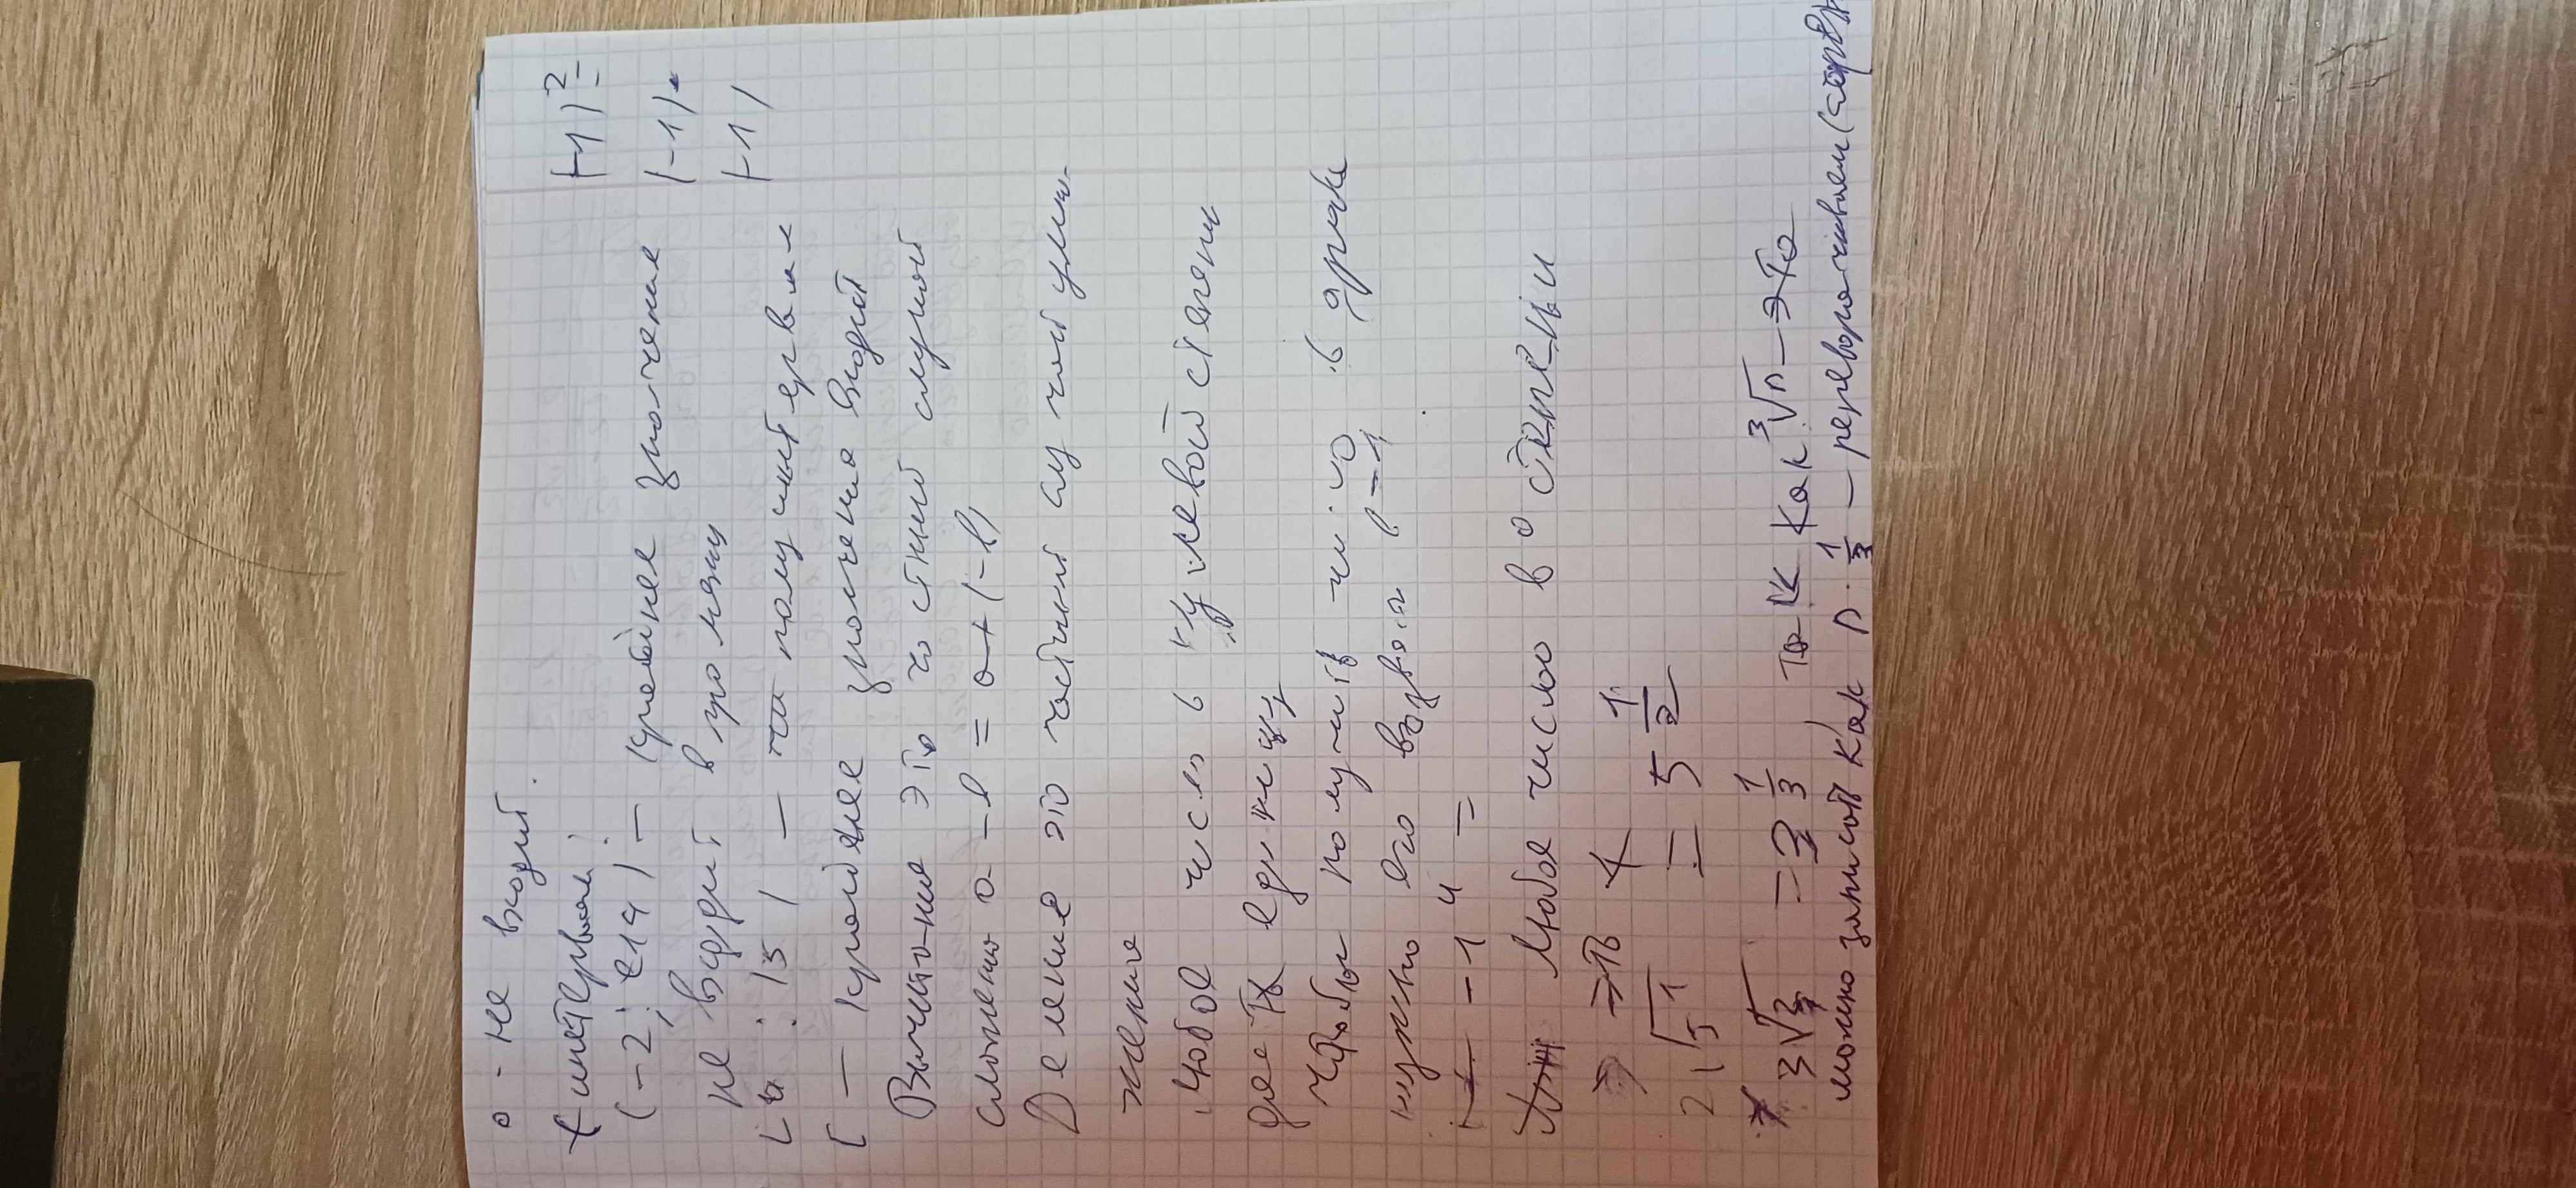 о - не входит.
интервал:
(-2; ) - крайнее значение
не входит в промежу
[ : 15 ) - полуинтервал
[ - крайнее значение входит
Вычитание это частный случай
сложения а - b = a + (-b)
Деление это частный случай умно-
жения
Любое число в нулевой степени
даст единицу
Чтобы получить число в
нужно его в -1
-1⁴ =
Любое число в 0 степени
=> 1
2√5¹ = 5^1/2
3√3 = 3^1/3, так как ³√n - это
можно записать как n · 1/3 - переворачиваем
(-1)² =
(-1) ·
(-1)